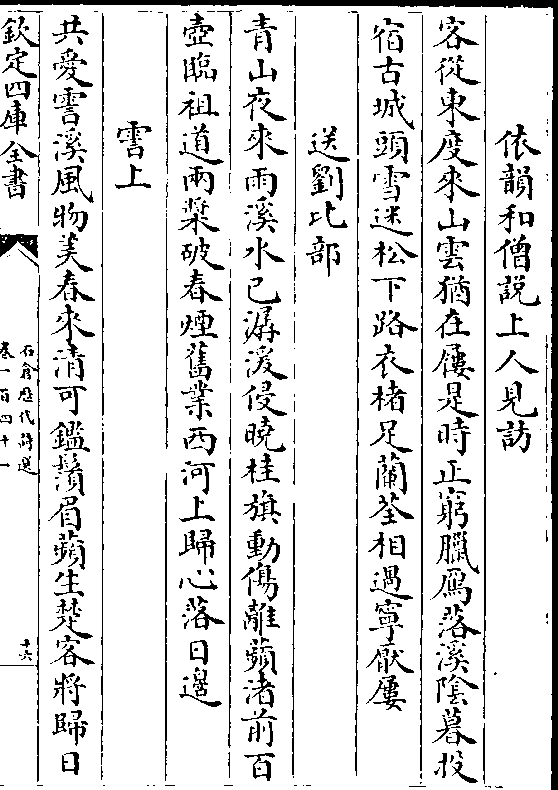 依韻和僧説上人見訪
客從東度來山雲猶在屨是時正窮臘鴈落溪陰暮投
宿古城頭雪迷松下路衣楮足蘭荃相過寧厭屢
送劉比部
青山夜來雨溪水已潺湲侵曉桂旗動傷離蘋渚前百
壺臨祖道兩槳破春煙舊業西河上歸心落日邊
霅上
共愛霅溪風物美春來清可鑑鬚眉蘋生楚客將歸日
欽定四庫全書
石倉歷代詩選
卷一百四十一
十六